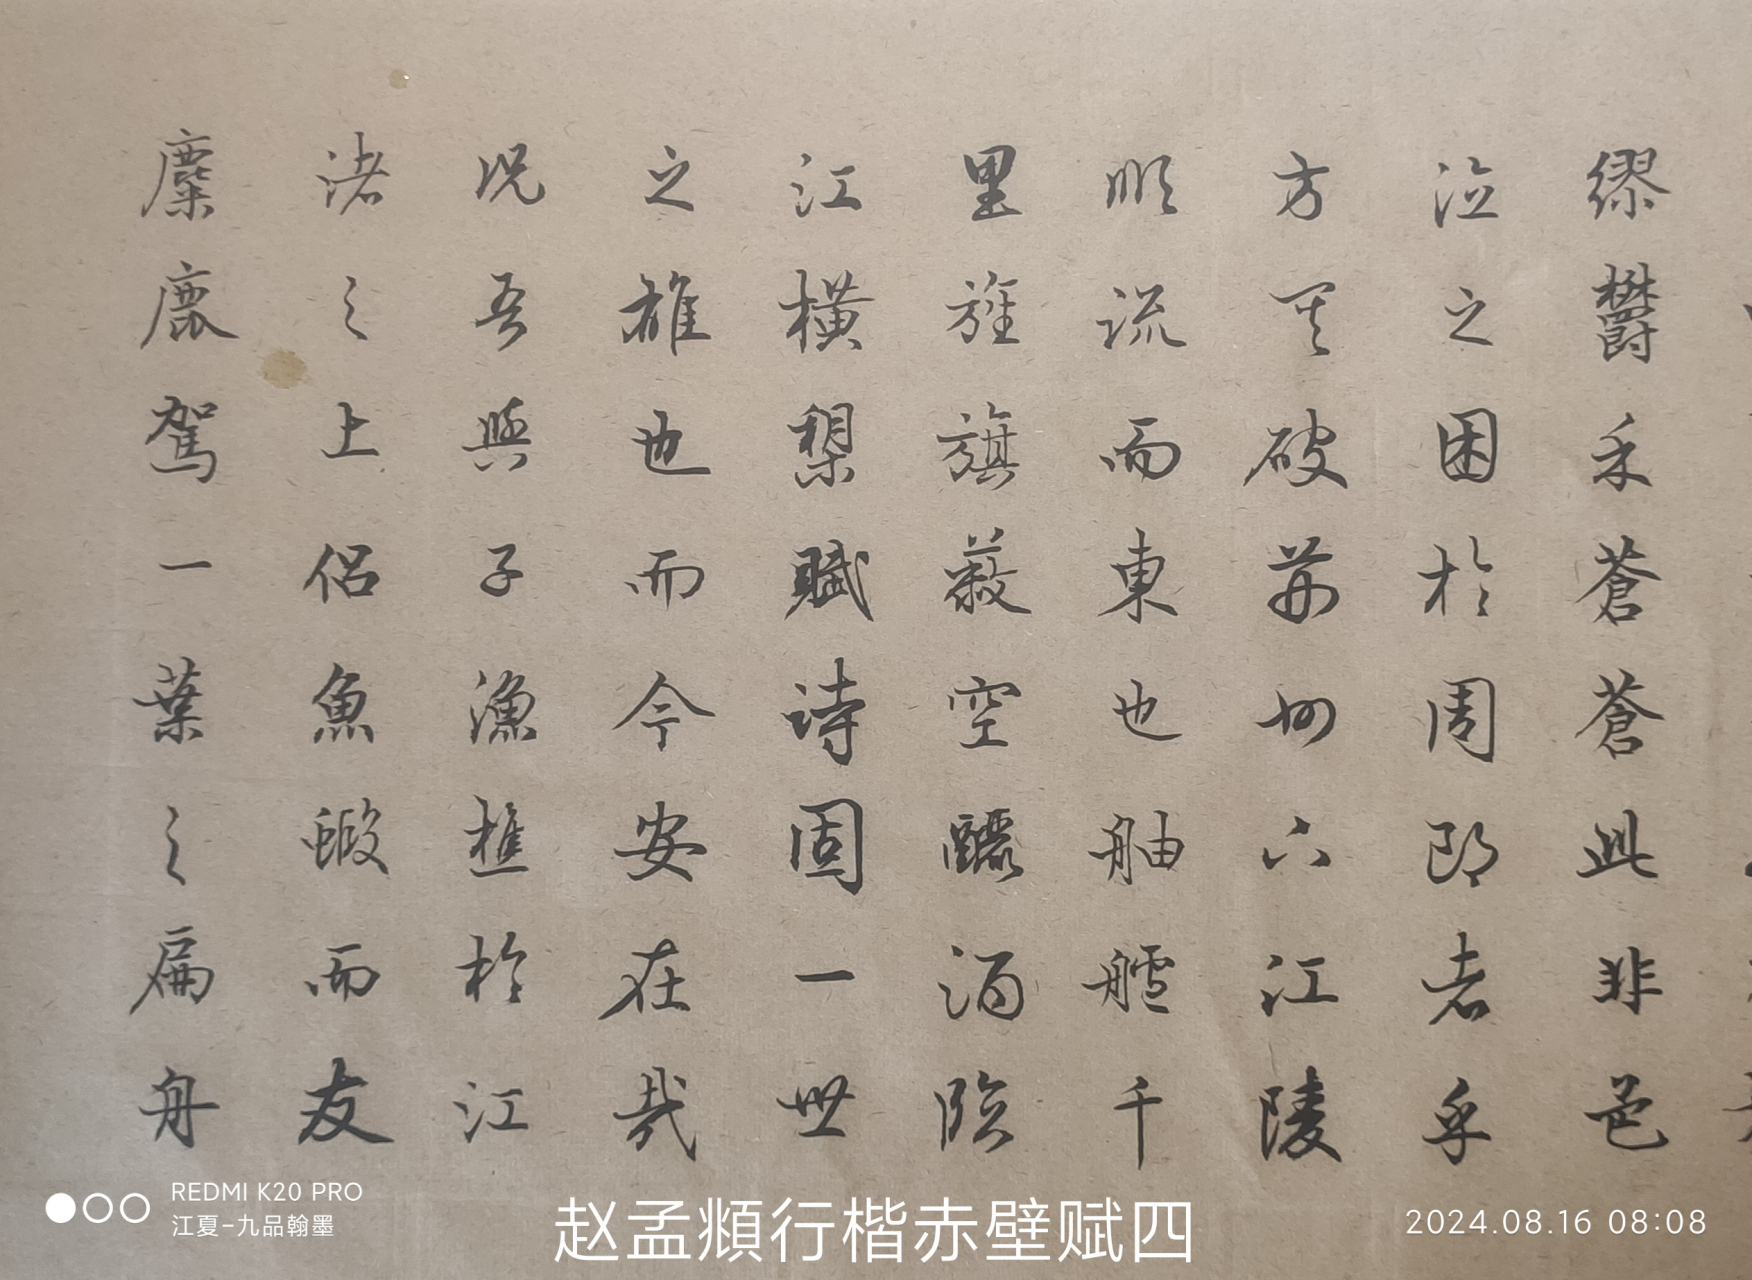 繆鬱乎蒼蒼此非孟
德之困於周郎者乎
方其破荊州下江陵
順流而東也舳艫千
里旌旗蔽空釃酒臨
江橫槊賦詩固一世
之雄也而今安在哉
況吾與子漁樵於江
渚之上侶魚蝦而友
麋鹿駕一葉之扁舟
REDMI K20 PRO
江夏-九品翰墨
赵孟頫行楷赤壁赋四
2024.08.16 08:08